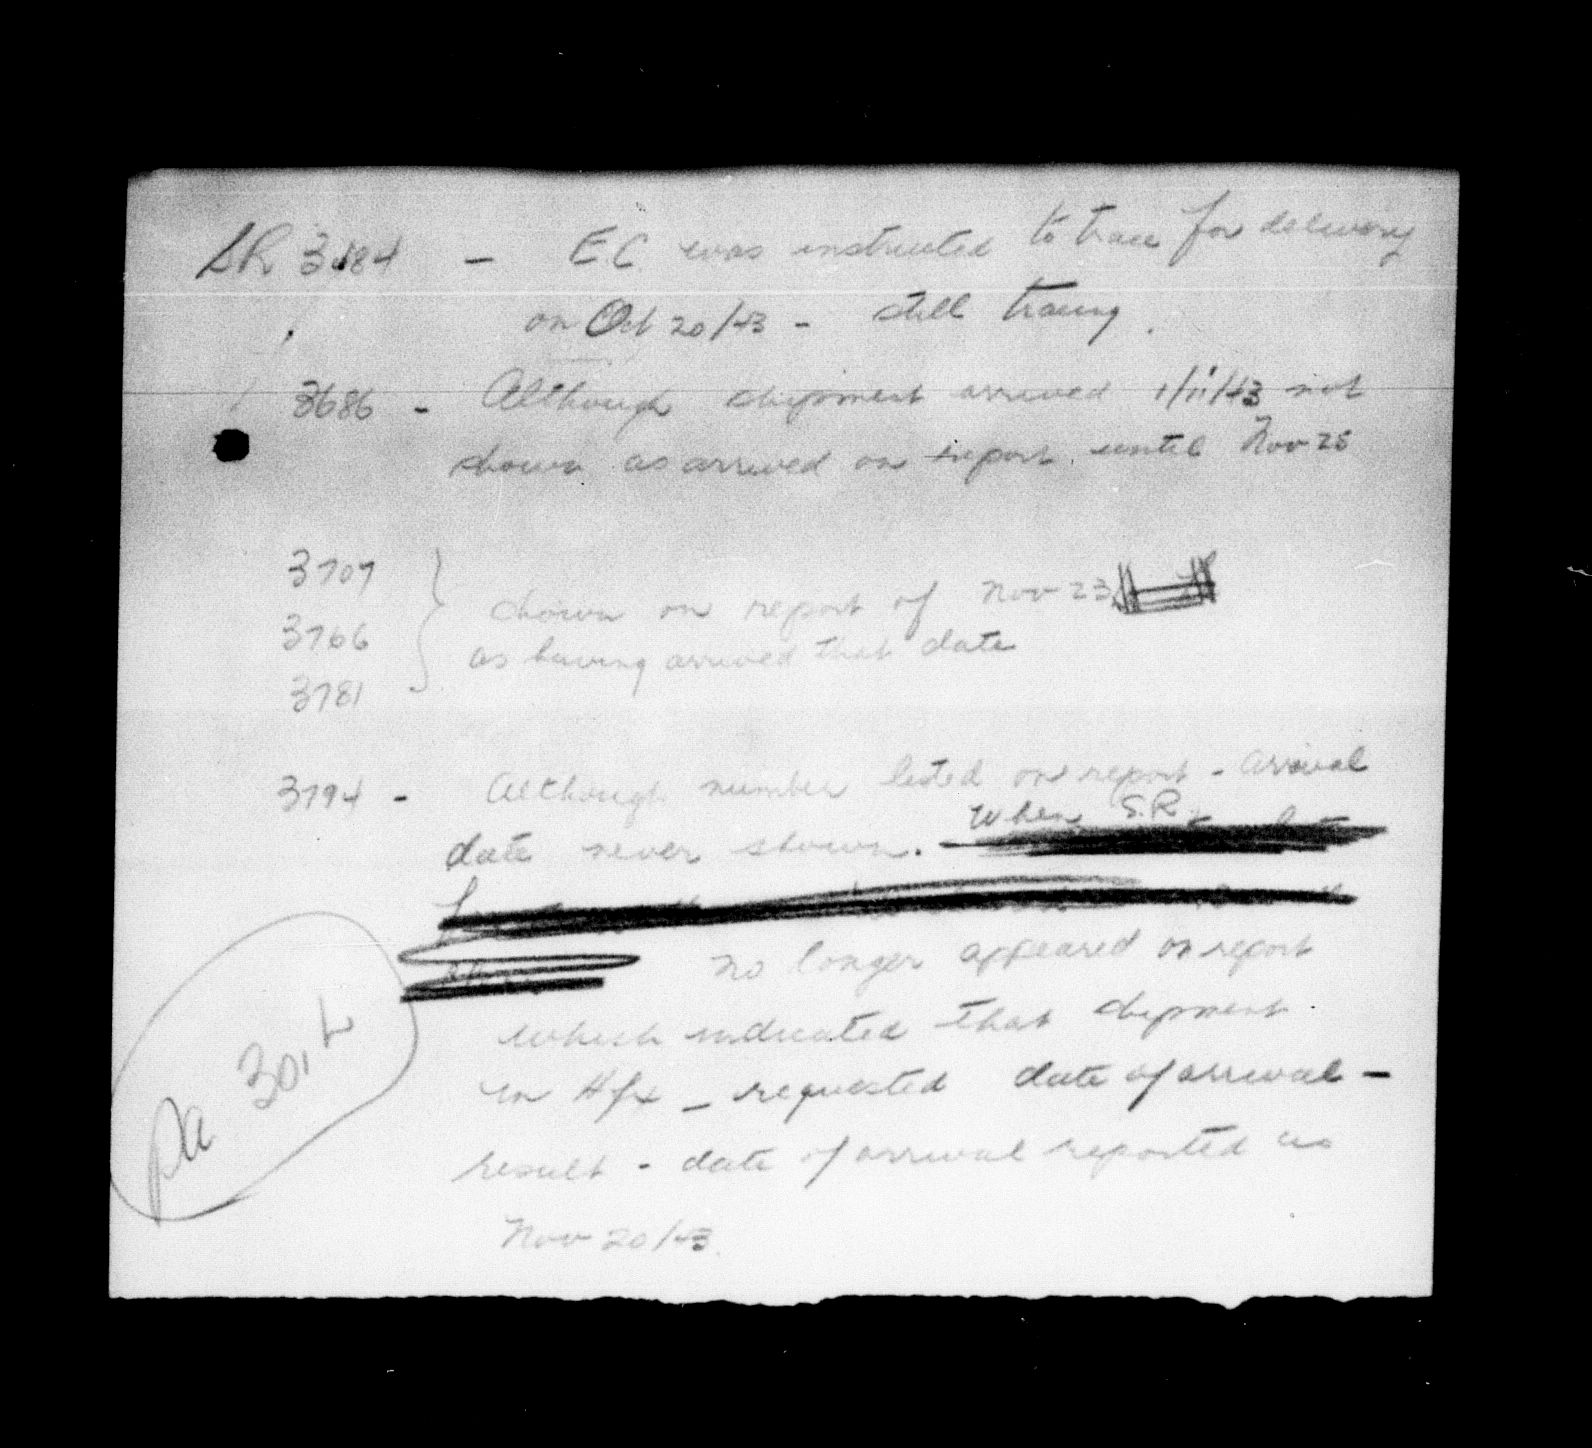 SR 3484 - E.C. was instructed to trace for delivery
on Oct 20/43 - still tracing.
3686 - Although shipment arrived 1/11/43 not
shown as arrived on report until Nov 25
3707
3766
3781
shown on report of Nov 23
as having arrived that date
3794 - Although number listed on report - arrival
date never shown. When S.R.
no longer appeared on report
which indicated that shipment
in Hfx - requested date of arrival -
result - date of arrival reported as
Nov 20/43.
pa 301-L